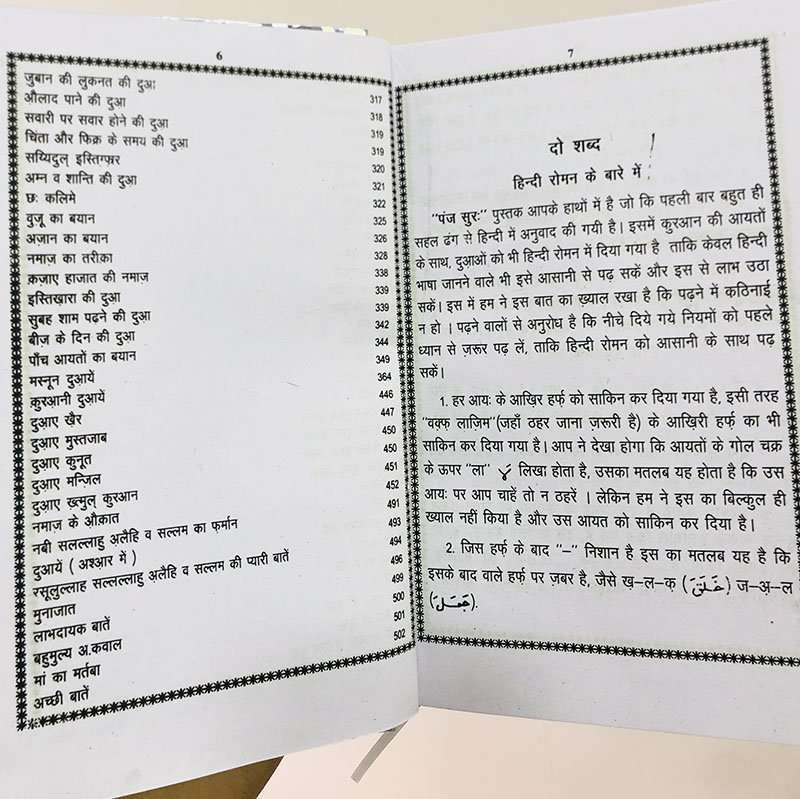 6
जुबान की लुकनत की दुआ 317
औलाद पाने की दुआ 318
सवारी पर सवार होने की दुआ 319
चिंता और फिक्र के समय की दुआ 319
सय्यिदुल् इस्तिग्फ़र 320
अम्न व शान्ति की दुआ 321
छः कलिमे 322
वुजू का बयान 325
अज़ान का बयान 326
नमाज़ का तरीक़ा 328
क़ज़ाए हाजात की नमाज़ 338
इस्तिख़ारा की दुआ 339
सुबह शाम पढ़ने की दुआ 339
बीज़ के दिन की दुआ 342
पाँच आयतों का बयान 344
मस्नून दुआयें 349
क़ुरआनी दुआयें 364
दुआए ख़ैर 446
दुआए मुस्तजाब 447
दुआए क़ुनूत 450
दुआए मन्ज़िल 450
दुआए ख़्त्मुल् क़ुरआन 451
नमाज़ के औक़ात 452
नबी सलल्लाहु अ़लैहि व सल्लम का फ़र्मान 491
दुआयें ( अश्आर में ) 493
रसूलुल्लाह सल्लल्लाहु अ़लैहि व सल्लम की प्यारी बातें 494
मुनाजात 496
लाभदायक बातें 499
बहुमुल्य अ.क़वाल 500
मां का मर्तबा 501
अच्छी बातें 502
7
दो शब्द
हिन्दी रोमन के बारे में
"पंज सुरः" पुस्तक आपके हाथों में है जो कि पहली बार बहुत ही
सहल ढंग से हिन्दी में अनुवाद की गयी है। इसमें क़ुरआन की आयतों
के साथ, दुआओं को भी हिन्दी रोमन में दिया गया है ताकि केवल हिन्दी
भाषा जानने वाले भी इसे आसानी से पढ़ सकें और इस से लाभ उठा
सकें। इस में हम ने इस बात का ख़्याल रखा है कि पढ़ने में कठिनाई
न हो । पढ़ने वालों से अनुरोध है कि नीचे दिये गये नियमों को पहले
ध्यान से ज़रूर पढ़ लें, ताकि हिन्दी रोमन को आसानी के साथ पढ़
सकें।
1. हर आयः के आख़िर हर्फ़ को साकिन कर दिया गया है, इसी तरह
"वक़्फ़ लाज़िम"(जहाँ ठहर जाना ज़रूरी है) के आख़िरी हर्फ़ का भी
साकिन कर दिया गया है। आप ने देखा होगा कि आयतों के गोल चक्र
के ऊपर "ला" لا लिखा होता है, उसका मतलब यह होता है कि उस
आयः पर आप चाहें तो न ठहरें । लेकिन हम ने इस का बिल्कुल ही
ख्याल नहीं किया है और उस आयत को साकिन कर दिया है।
2. जिस हर्फ़ के बाद "–" निशान है इस का मतलब यह है कि
इसके बाद वाले हर्फ़ पर ज़बर है, जैसे ख़–ल–क़ (خَلَقَ) ज–अ़–ल
(جَعَلَ).